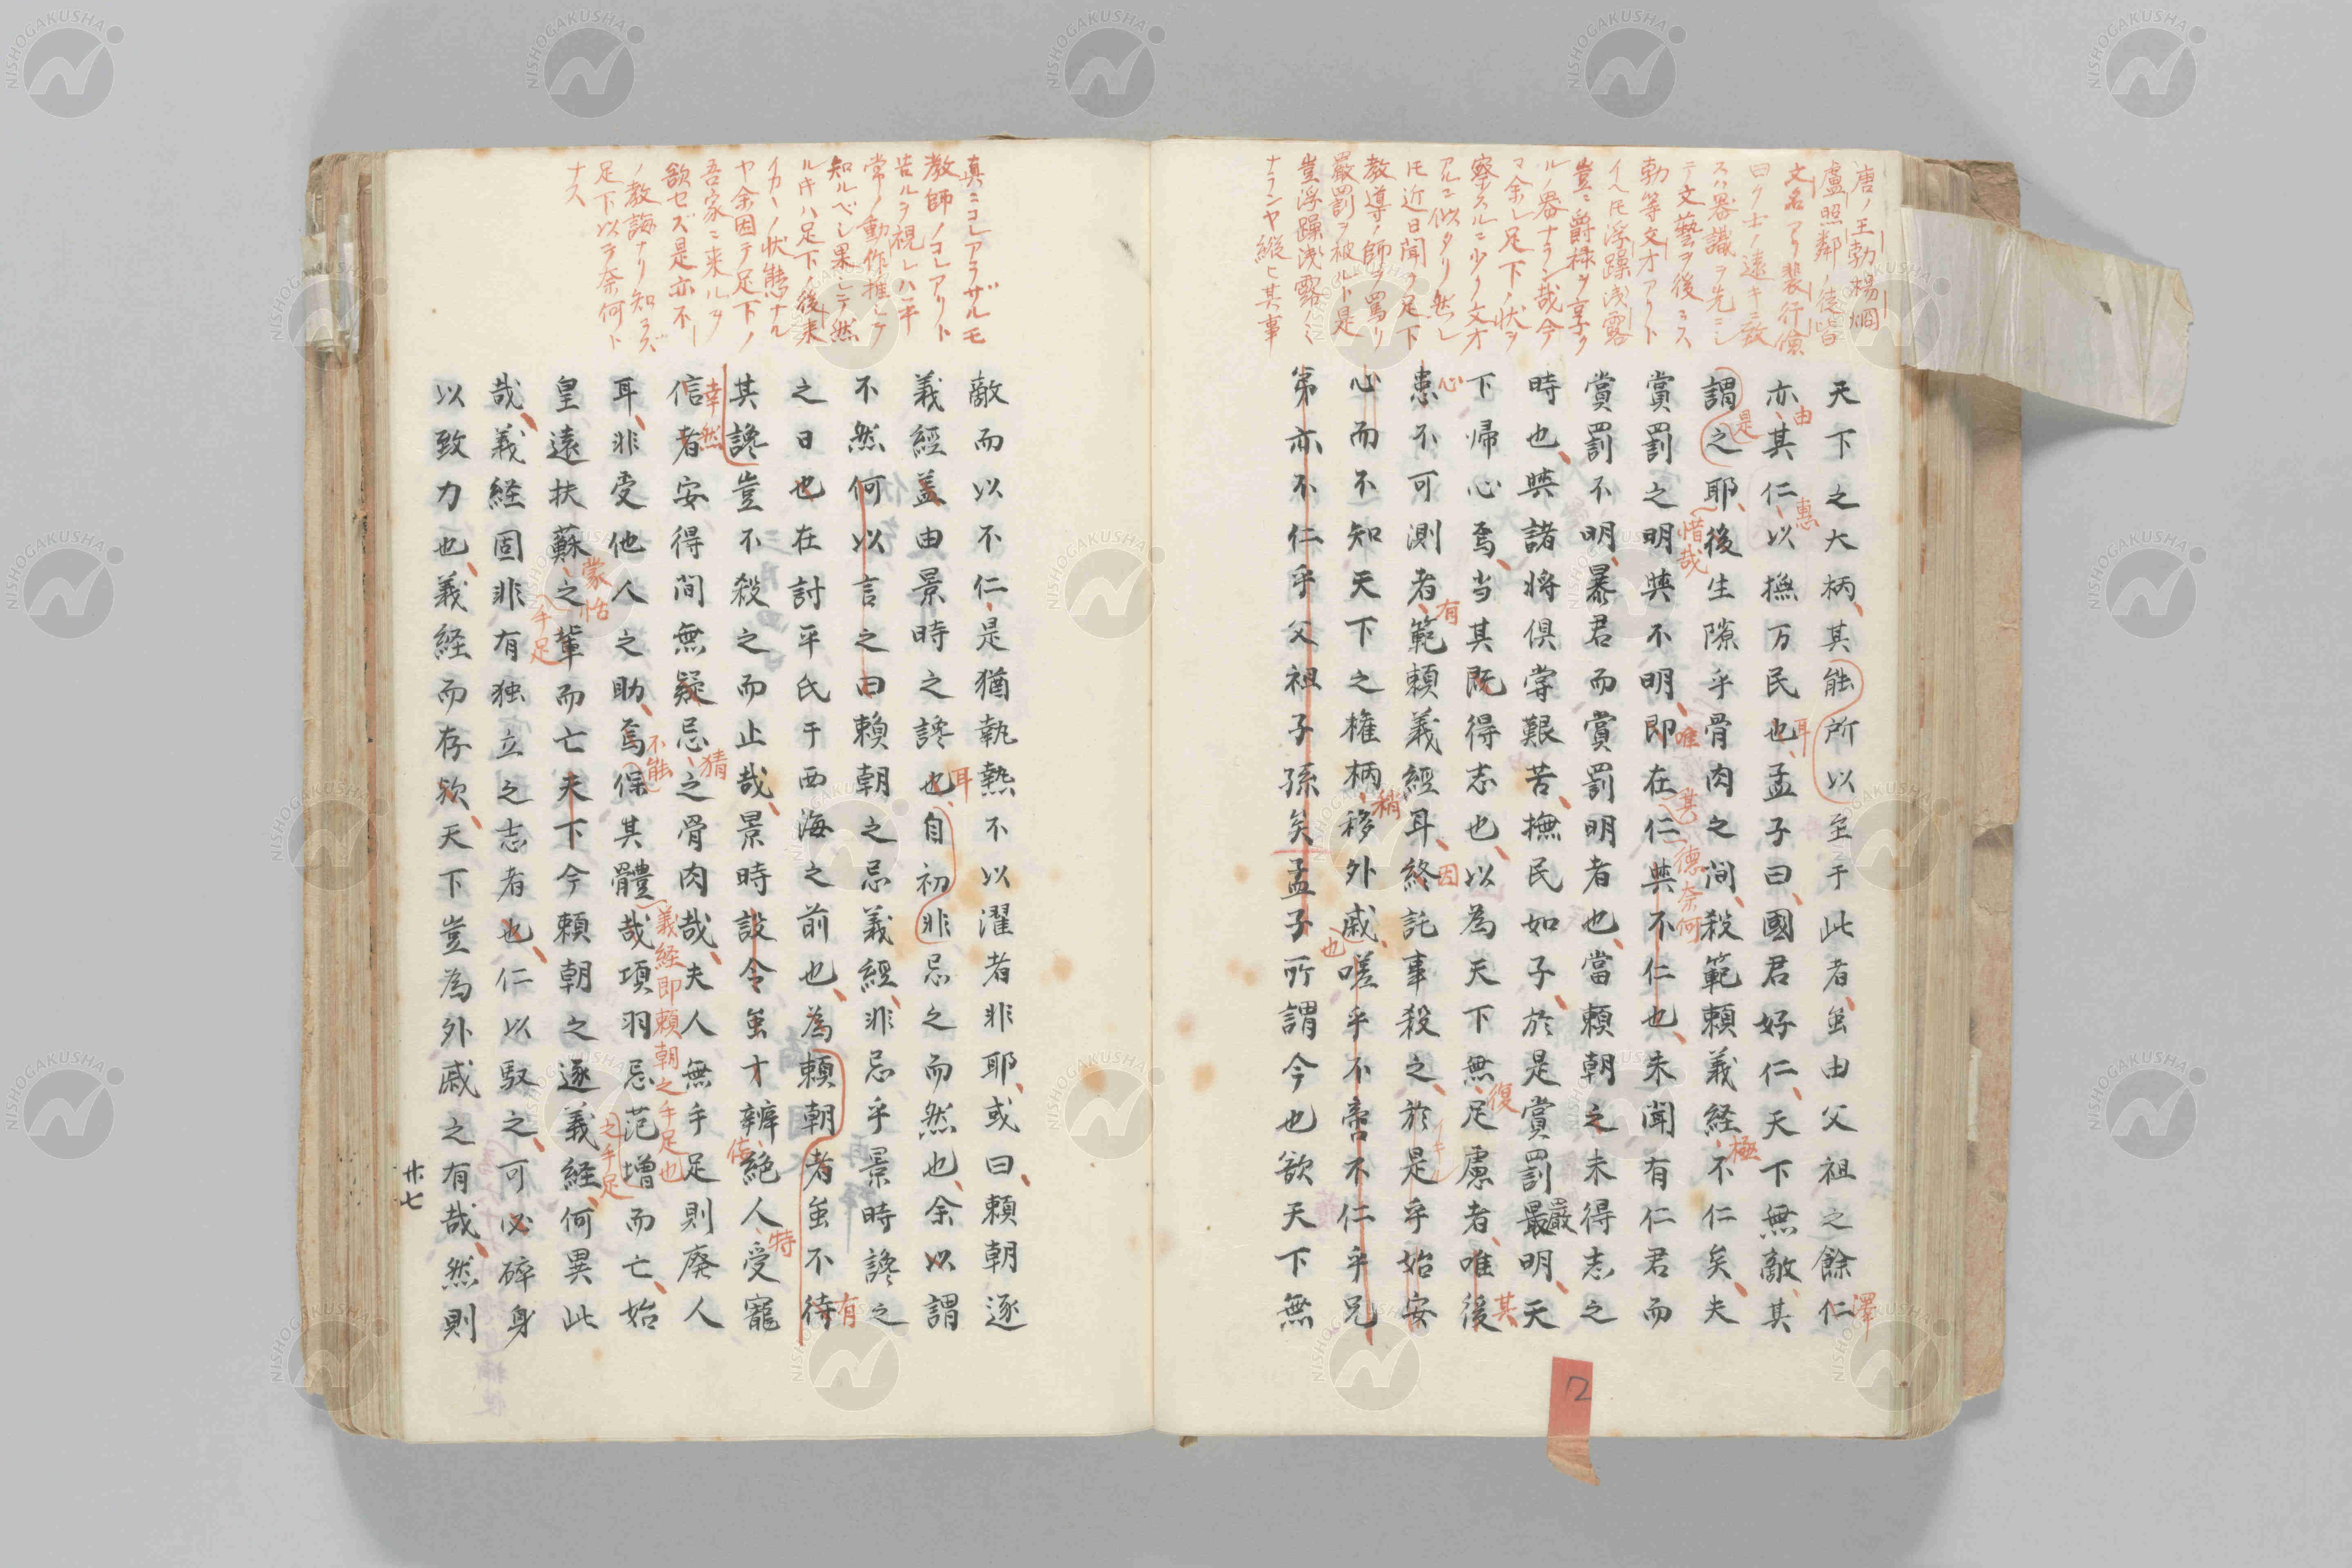 唐ノ王勃楊烱
盧照鄰ノ徒皆
文名アリ裴行儉
曰ク士ノ遠キニ致
スハ器識ヲ先ニシ
テ文藝ヲ後ニス
勃等文才アリト
イヘ𪜈浮躁浅露
豈ニ爵禄ヲ享ク
ルノ器ナラン哉今
マ余レ足下ノ状ヲ
察スルニ少ク文才
アルニ似タリ然レ
𪜈近日聞ク足下
教導ノ師ヲ罵リ
嚴罰ヲ被ルト是
豈浮躁浅露ノミ
ナランヤ縦ヒ其事
天下之大柄其能所以至于此者虽由父祖之餘仁
澤
亦其仁以撫万民也孟子曰國君好仁天下無敵其
由
惠
耳
謂之耶後生隙乎骨肉之間殺範頼義経不仁矣夫
是
極
賞罰之明與不明即在仁與不仁也未聞有仁君而
惜哉
唯
其
德奈何
賞罰不明暴君而賞罰明者也當頼朝之未得志之
時也與諸将倶嘗艱苦撫民如子於是賞罰最明天
嚴
下帰心焉当其既得志也以為天下無足慮者唯後
復
其
患不可測者範頼義經耳終託事殺之於是乎始安
心
有
因
心而不知天下之権柄移外戚嗟乎不啻不仁乎兄
稍
也
第亦不仁乎父祖子孫矣孟子所謂今也欲天下無
真ニコレアラザルモ
教師ノコレアリト
告ルヲ視レハ平
常ノ動作推シテ
知ルベシ果シテ然
ルキハ足下ノ後来
イカーノ状態ナル
ヤ余因テ足下ノ
吾家ニ来ルヲ
欲セズ是亦不ー
ノ教誨ナリ知ラズ
足下以ヲ奈何ト
ナス
敵而以不仁是猶執熱不以濯者非耶或曰頼朝逐
義經蓋由景時之讒也自初非忌之而然也余以謂
耳
不然何以言之曰頼朝之忌義經非忌乎景時讒之
之日也在討平氏于西海之前也為頼朝者虽不待
有
其讒豈不殺之而止哉景時設令虽才辨絶人受寵
特
信者安得間無疑忌之骨肉哉夫人無手足則廃人
幸然
猜
耳非受他人之助焉保其體哉項羽忌范増而亡始
不能
義経即頼朝之手足也
皇遠扶蘇之輩而亡夫下今頼朝之逐義経何異此
蒙恬
之手足
哉義経固非有独立之志者也仁以馭之可必碎身
手足
以致力也義経而存欤天下豈為外戚之有哉然則
廿七
2
NISHOGAKUSHA